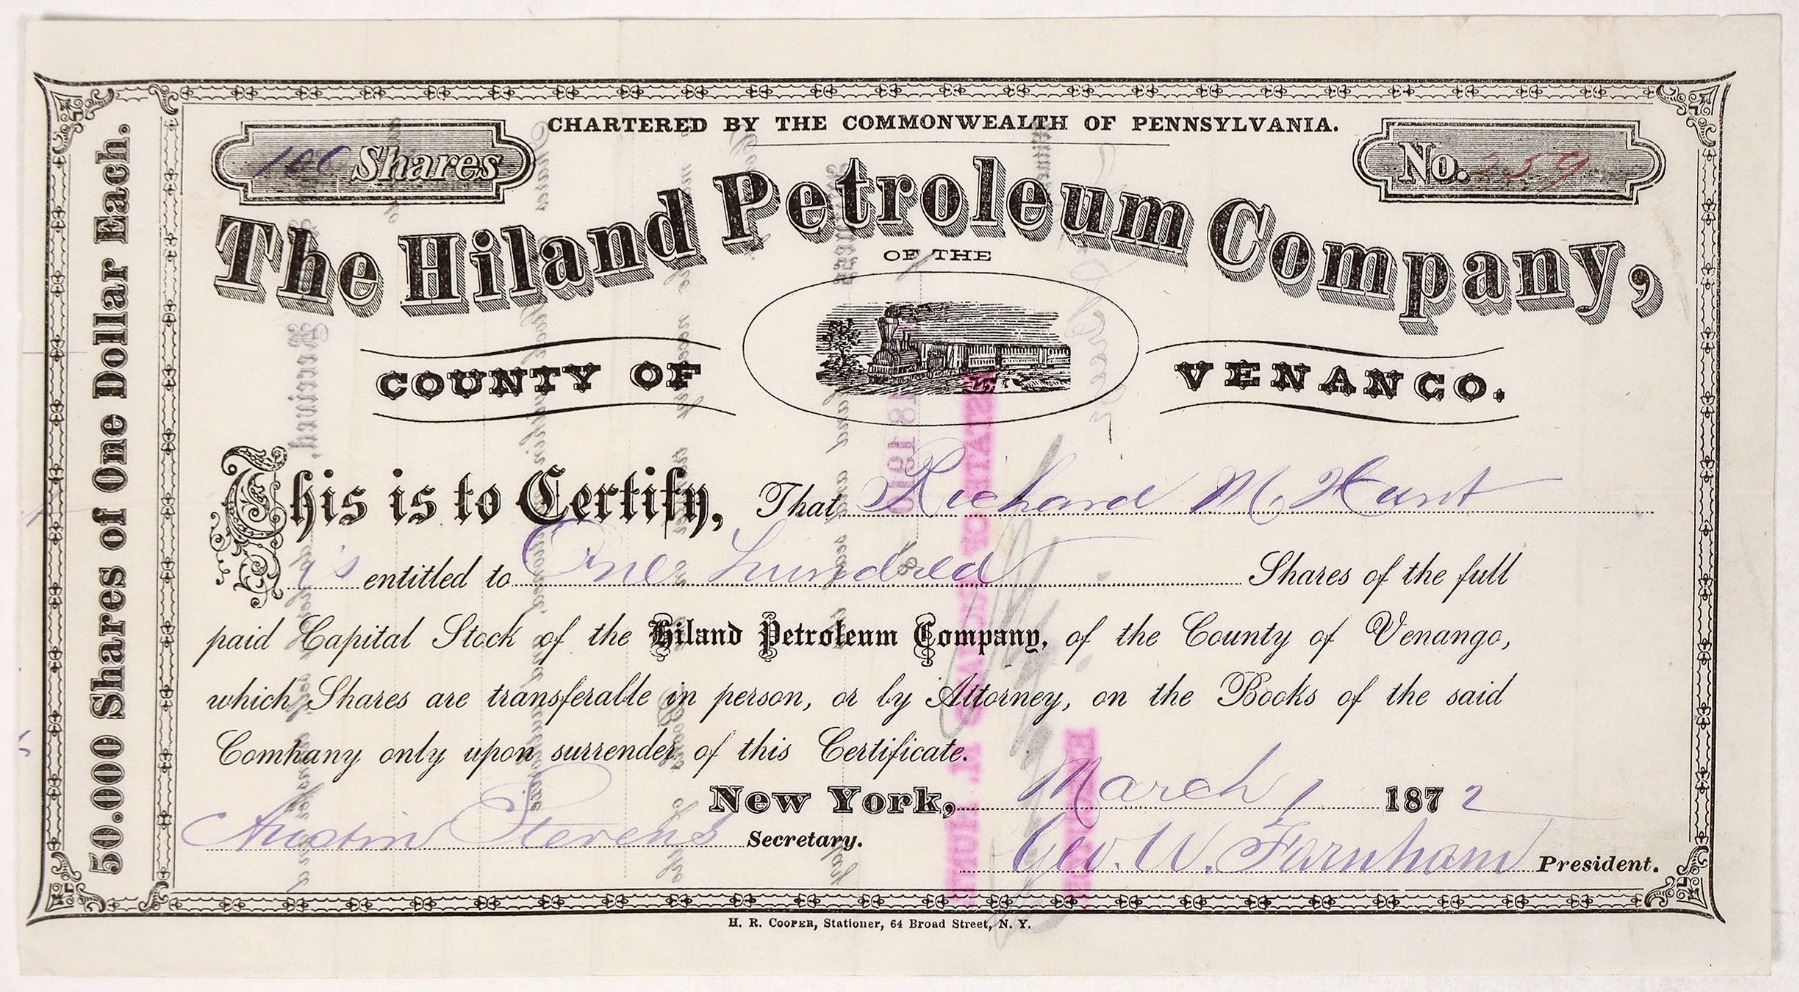 CHARTERED BY THE COMMONWEALTH OF PENNSYLVANIA.
100 Shares
No. 259
The Hiland Petroleum Company,
OF THE
COUNTY OF VENANGO.
50.000 Shares of One Dollar Each.
This is to Certify, That Richard M Hunt
is entitled to One Hundred Shares of the full
paid Capital Stock of the Hiland Petroleum Company, of the County of Venango,
which Shares are transferable in person, or by Attorney, on the Books of the said
Comhany only upon surrender of this Certificate.
New York, March 1 1872
Austin Stevens Secretary.
Geo. W. Farnham President.
H. R. COOPER, Stationer, 64 Broad Street, N. Y.